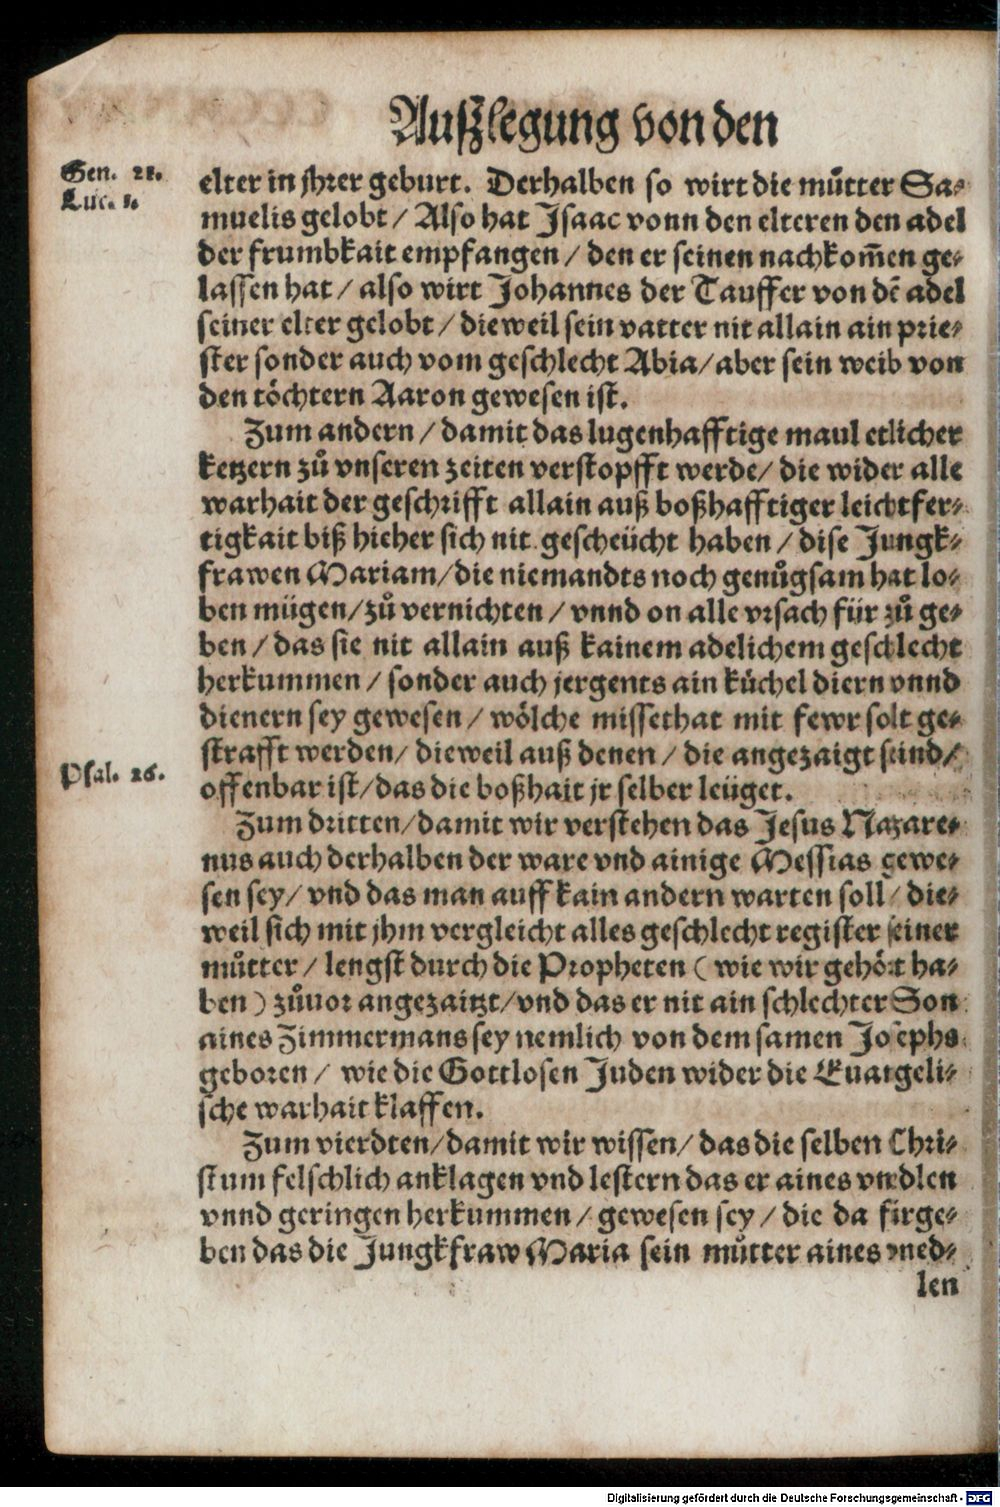 Außzlegung von den
Gen. 21.
Luc. 1.
elter in jhrer geburt. Derhalben so wirt die můtter Sa⸗
muelis gelobt / Also hat Isaac vonn den elteren den adel
der frumbkait empfangen / den er seinen nachkom̃en ge⸗
lassen hat / also wirt Johannes der Tauffer von dẽ adel
seiner elter gelobt / dieweil sein vatter nit allain ain prie⸗
ster sonder auch vom geschlecht Abia / aber sein weib von
den töchtern Aaron gewesen ist.
Zum andern / damit das lugenhafftige maul etlicher
ketzern zů vnseren zeiten verstopfft werde / die wider alle
warhait der geschrifft allain auß boßhafftiger leichtfer⸗
tigkait biß hieher sich nit gescheücht haben / dise Jungk⸗
frawen Mariam / die niemandts noch genůgsam hat lo⸗
ben mügen / zů vernichten / vnnd on alle vrsach für zů ge⸗
ben / das sie nit allain auß kainem adelichem geschlecht
herkummen / sonder auch jergents ain küchel diern vnnd
dienern sey gewesen / wölche missethat mit fewr solt ge⸗
strafft werden / dieweil auß denen / die angezaigt seind /
Psal. 26.
offenbar ist / das die boßhait jr selber leüget.
Zum dritten / damit wir verstehen das Jesus Nazare⸗
nus auch derhalben der ware vnd ainige Messias gewe⸗
sen sey / vnd das man auff kain andern warten soll / die⸗
weil sich mit jhm vergleicht alles geschlecht register seiner
můtter / lengst durch die Propheten ( wie wir gehört ha⸗
ben ) zůuor angezaitzt / vnd das er nit ain schlechter Son
aines Zimmermans sey nemlich von dem samen Josephs
geboren / wie die Gottlosen Juden wider die Euangeli⸗
sche warhait klaffen.
Zum vierdten / damit wir wissen / das die selben Chri⸗
stum felschlich anklagen vnd lestern das er aines vnedlen
vnnd geringen herkummen / gewesen sey / die da fürge⸗
ben das die Jungkfraw Maria sein můtter aines vned⸗
len
Digitalisierung gefördert durch die Deutsche Forschungsgemeinschaft - DFG